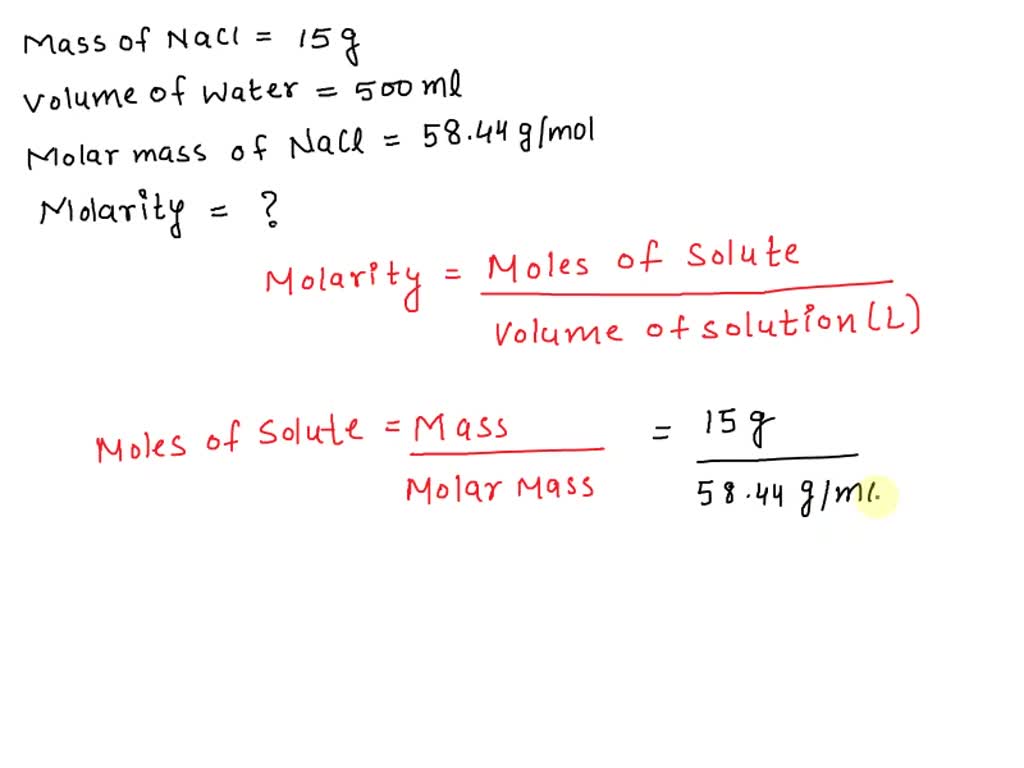 Mass of NaCl = 15 g
Volume of Water = 500 ml
Molar mass of NaCl = 58.44 g/mol
Molarity = ?
Molarity = Moles of Solute
Volume of solution (L)
Moles of Solute = Mass = 15 g
Molar Mass 58.44 g/m